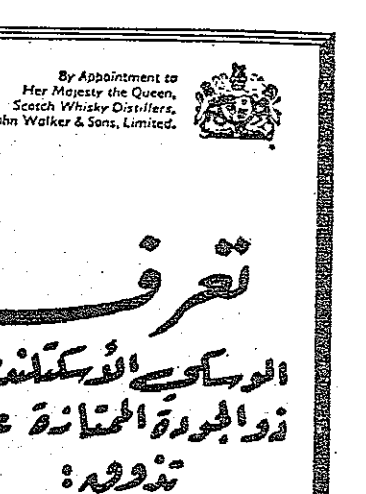 By Appointment to
Her Majesty the Queen,
Scotch Whisky Distillers,
John Walker & Sons, Limited.
تعرف
الوسكي الأسكتلندي
ذو الجودة الممتازة
تذوق :